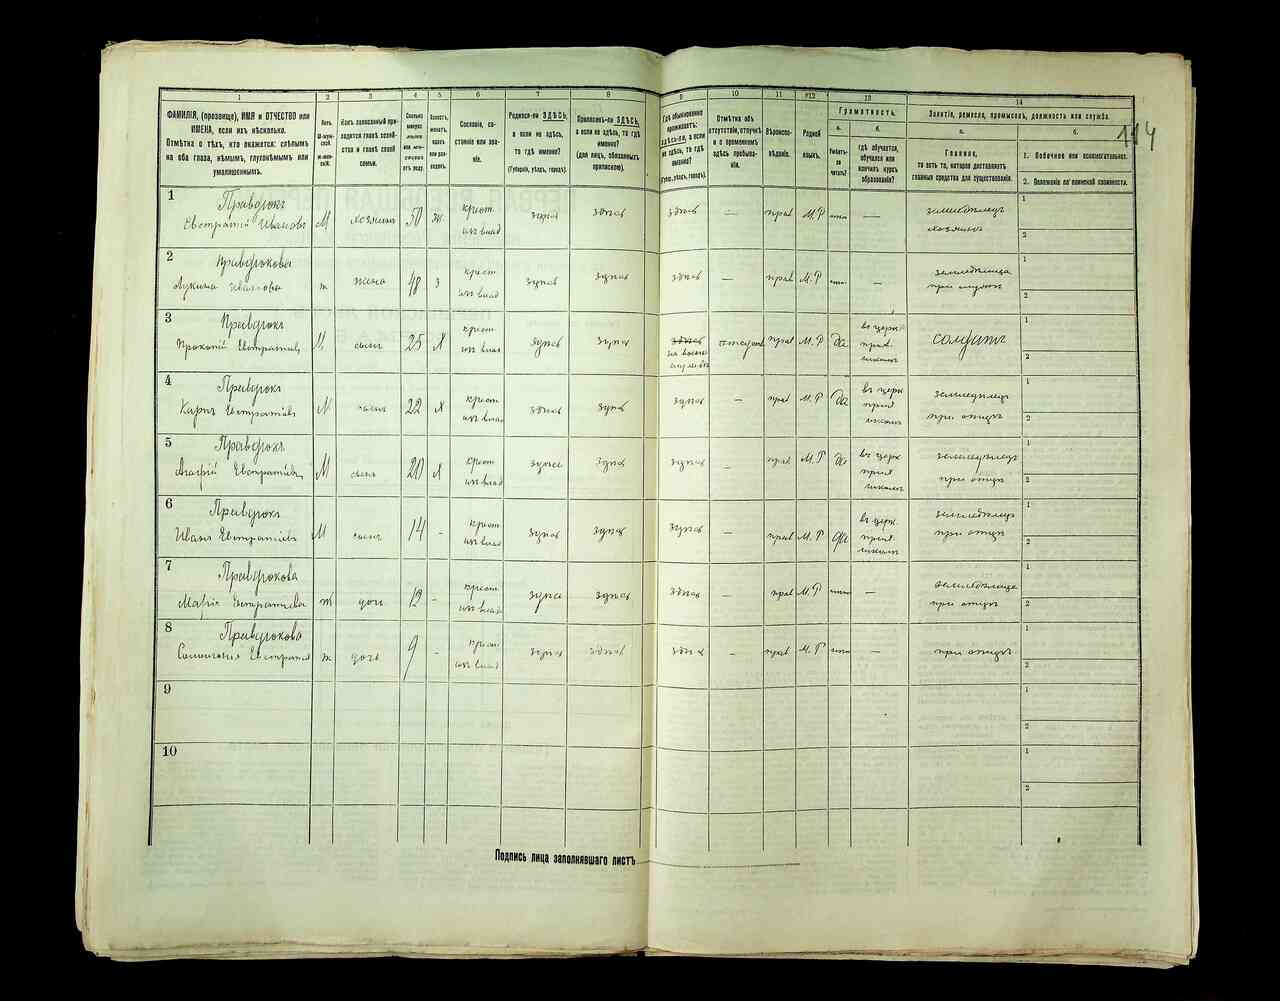 114
1 2 3 4 5 6 7 8 9 10 11 12 13 14
ФАМИЛІЯ, (прозвище), ИМЯ и ОТЧЕСТВО или
ИМЕНА, если ихъ нѣсколько.
Отмѣтка о тѣхъ, кто окажется: слѣпымъ
на оба глаза, нѣмымъ, глухонѣмымъ или
умалишеннымъ.
Полъ.
М-муж-
ской.
Ж-жен-
скій.
Какъ записанный при-
ходится главѣ хозяй-
ства и главѣ своей
семьи.
Сколько
минуло
лѣтъ
или мѣ-
сяцевъ
отъ роду.
Холостъ,
женатъ,
вдовъ
или раз-
веденъ.
Сословіе, со-
стояніе или зва-
ніе.
Родился-ли ЗДѢСЬ,
а если не здѣсь,
то гдѣ именно?
(Губернія, уѣздъ, городъ).
Приписанъ-ли ЗДѢСЬ,
а если не здѣсь, то гдѣ
именно?
(для лицъ, обязанныхъ
припискою).
Гдѣ обыкновенно
проживаетъ:
здѣсь-ли, а если
не здѣсь, то гдѣ
именно?
(Губер., уѣздъ, городъ).
Отмѣтка объ
отсутствіи, отлучкѣ
и о временномъ
здѣсь пребыва-
ніи.
Вѣроиспо-
вѣданіе.
Родной
языкъ.
Грамотность.
а.
Умѣетъ-
ли
читать?
б.
гдѣ обучается,
обучался или
кончилъ курсъ
образованія?
Занятіе, ремесло, промыселъ, должность или служба.
а.
Главное,
то есть то, которое доставляетъ
главныя средства для существованія.
б.
1. Побочное или вспомогательное.
2. Положеніе по воинской повинности.
1
Правдюкъ
Евстратій Ивановъ М хозяинъ 50 ж крест здѣсь здѣсь здѣсь — прав М.Р — земледѣлецъ
хозяинъ
1
2
2
Правдюкова
Ивановна ж жена 48 з крест здѣсь здѣсь здѣсь — прав М.Р — земледѣлица
1
2
3
Правдюкъ
Прокопій Евстратіевъ М сынъ 25 Х крест здѣсь здѣсь здѣсь прав М.Р да въ церк
прих
школѣ солдатъ
1
2
4
Правдюкъ
Карпъ Евстратіевъ М сынъ 22 Х крест здѣсь здѣсь здѣсь — прав М.Р да въ церк
прих
школѣ земледѣлецъ
при отцѣ
1
2
5
Правдюкъ
Евстратіевъ М сынъ 20 Х крест здѣсь здѣсь здѣсь — прав М.Р да въ церк
прих
школѣ земледѣлецъ
при отцѣ
1
2
6
Правдюкъ
Иванъ Евстратіевъ М сынъ 14 - крест здѣсь здѣсь здѣсь — прав М.Р да въ церк
прих
школѣ земледѣлецъ
при отцѣ
1
2
7
Правдюкова
Марія Евстратіева ж дочь 12 - крест здѣсь здѣсь здѣсь — прав М.Р — земледѣлица
при отцѣ
1
2
8
Правдюкова
ж дочь 9 - крест здѣсь здѣсь здѣсь — прав М.Р — при отцѣ
1
2
9
1
2
10
1
2
Подпись лица заполнявшаго листъ